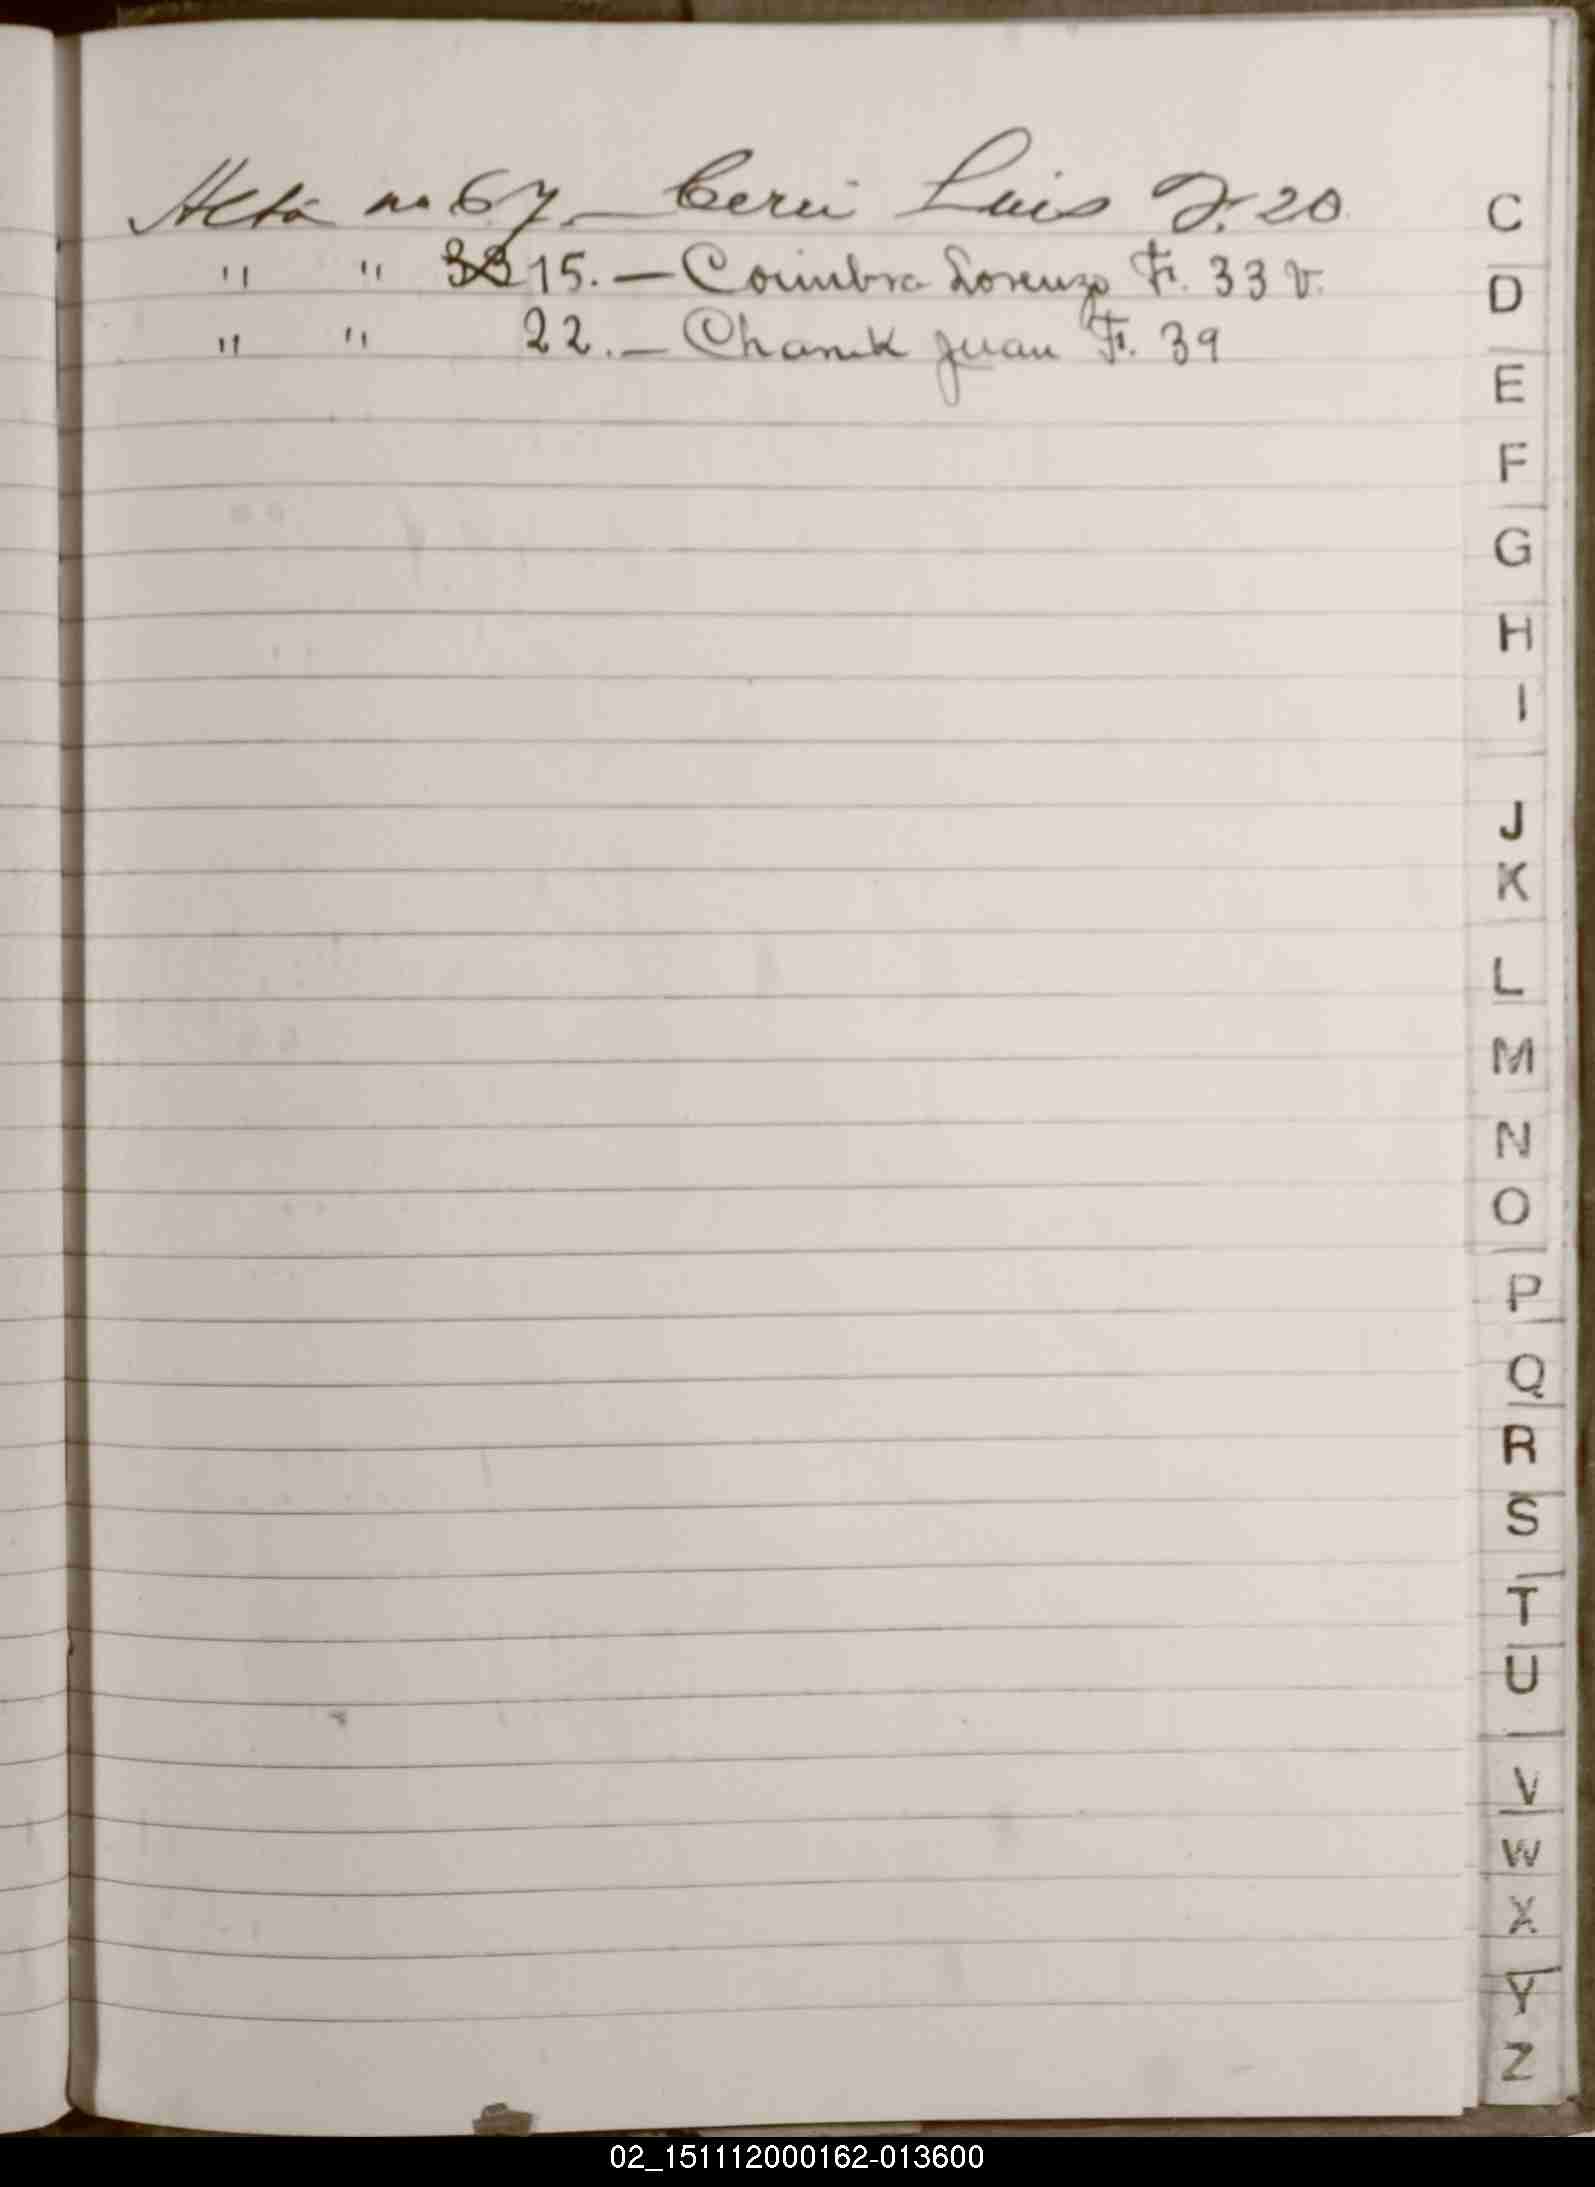 Acta no 67. — Ceru Luis F. 20
" " 15. — Coimbra Lorenzo F. 33 v.
" " 22. — Chanik Juan F. 39
C
D
E
F
G
H
I
J
K
L
M
N
O
P
Q
R
S
T
U
V
W
X
Y
Z
02_151112000162-013600